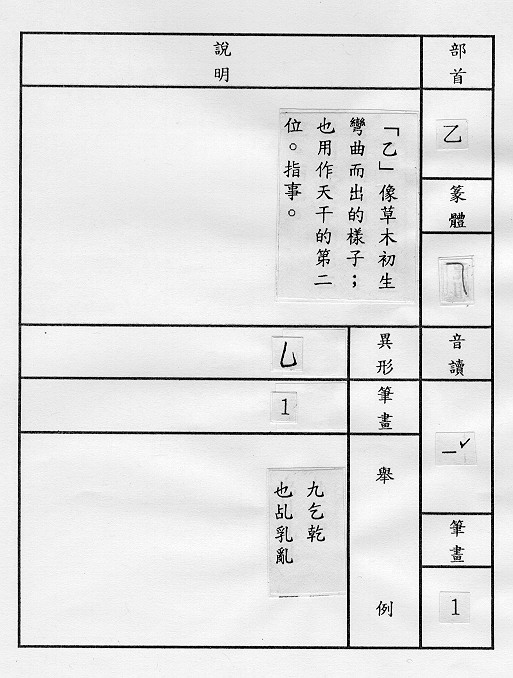 部首
乙
篆體
音讀
ㄧˇ
筆畫
1
說明
「乙」像草木初生
彎曲而出的樣子；
也用作天干的第二
位。指事。
異形
乚
筆畫
1
舉例
九乞乾
也乩乳亂